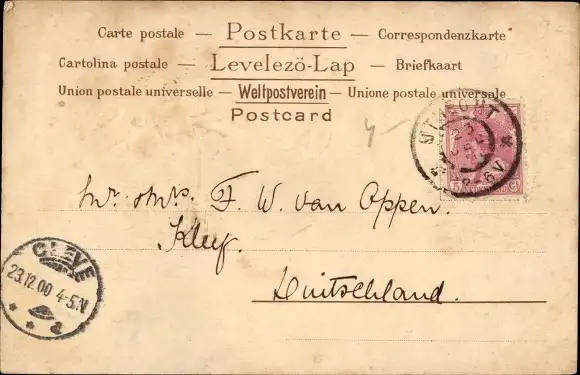 Carte postale — Postkarte — Correspondenzkarte
Cartolina postale — Levelezö-Lap — Briefkaart
Union postale universelle — Weltpostverein — Unione postale universale
Postcard
UTRECHT
23
8-6V
F. W. van Oppen.
Kleef.
Duitschland.
CLEVE
23.12.00 4-5N
* * a